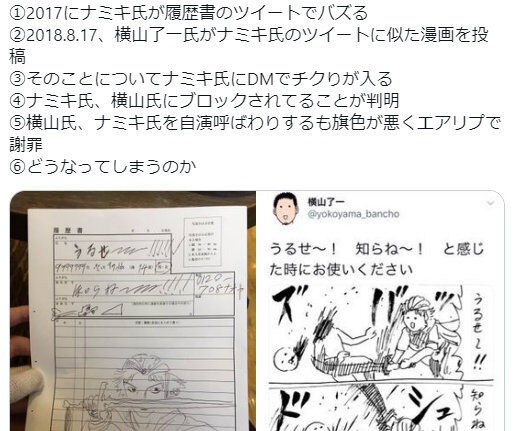 ①2017にナミキ氏が履歴書のツイートでバズる
②2018.8.17、横山了一氏がナミキ氏のツイートに似た漫画を投
稿
③そのことについてナミキ氏にDMでチクりが入る
④ナミキ氏、横山氏にブロックされてることが判明
⑤横山氏、ナミキ氏を自演呼ばわりするも旗色が悪くエアリプで
謝罪
⑥どうなってしまうのか
履歴書
うるせ
知らね
横山了一
@yokoyama_bancho
うるせ〜！ 知らね〜！ と感じ
た時にお使いください
ズバ
うるせ〜!!
知らね
ドシュ